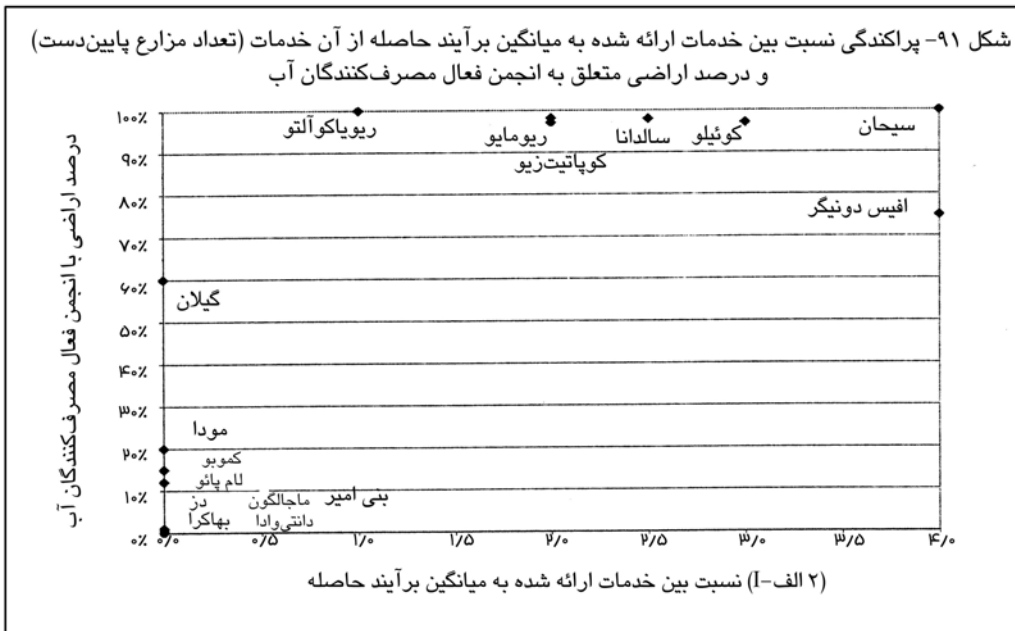 شکل ۹۱- پراکندگی نسبت بین خدمات ارائه شده به میانگین برآیند حاصله از آن خدمات (تعداد مزارع پایین‌دست)
و درصد اراضی متعلق به انجمن فعال مصرف‌کنندگان آب
درصد اراضی با انجمن فعال مصرف‌کنندگان آب
۱۰۰٪
۹۰٪
۸۰٪
۷۰٪
۶۰٪
۵۰٪
۴۰٪
۳۰٪
۲۰٪
۱۰٪
۰٪
سیحان
کوئیلو
سالدانا
ریومایو
ریویاکوآلتو
کوپاتیت‌زیو
افیس دونیگر
گیلان
مودا
کموبو
لام پائو
دز ماجالگون بنی امیر
بهاکرا دانتی‌وادا
۰/۰ ۰/۵ ۱/۰ ۱/۵ ۲/۰ ۲/۵ ۳/۰ ۳/۵ ۴/۰
(۲ الف-I) نسبت بین خدمات ارائه شده به میانگین برآیند حاصله